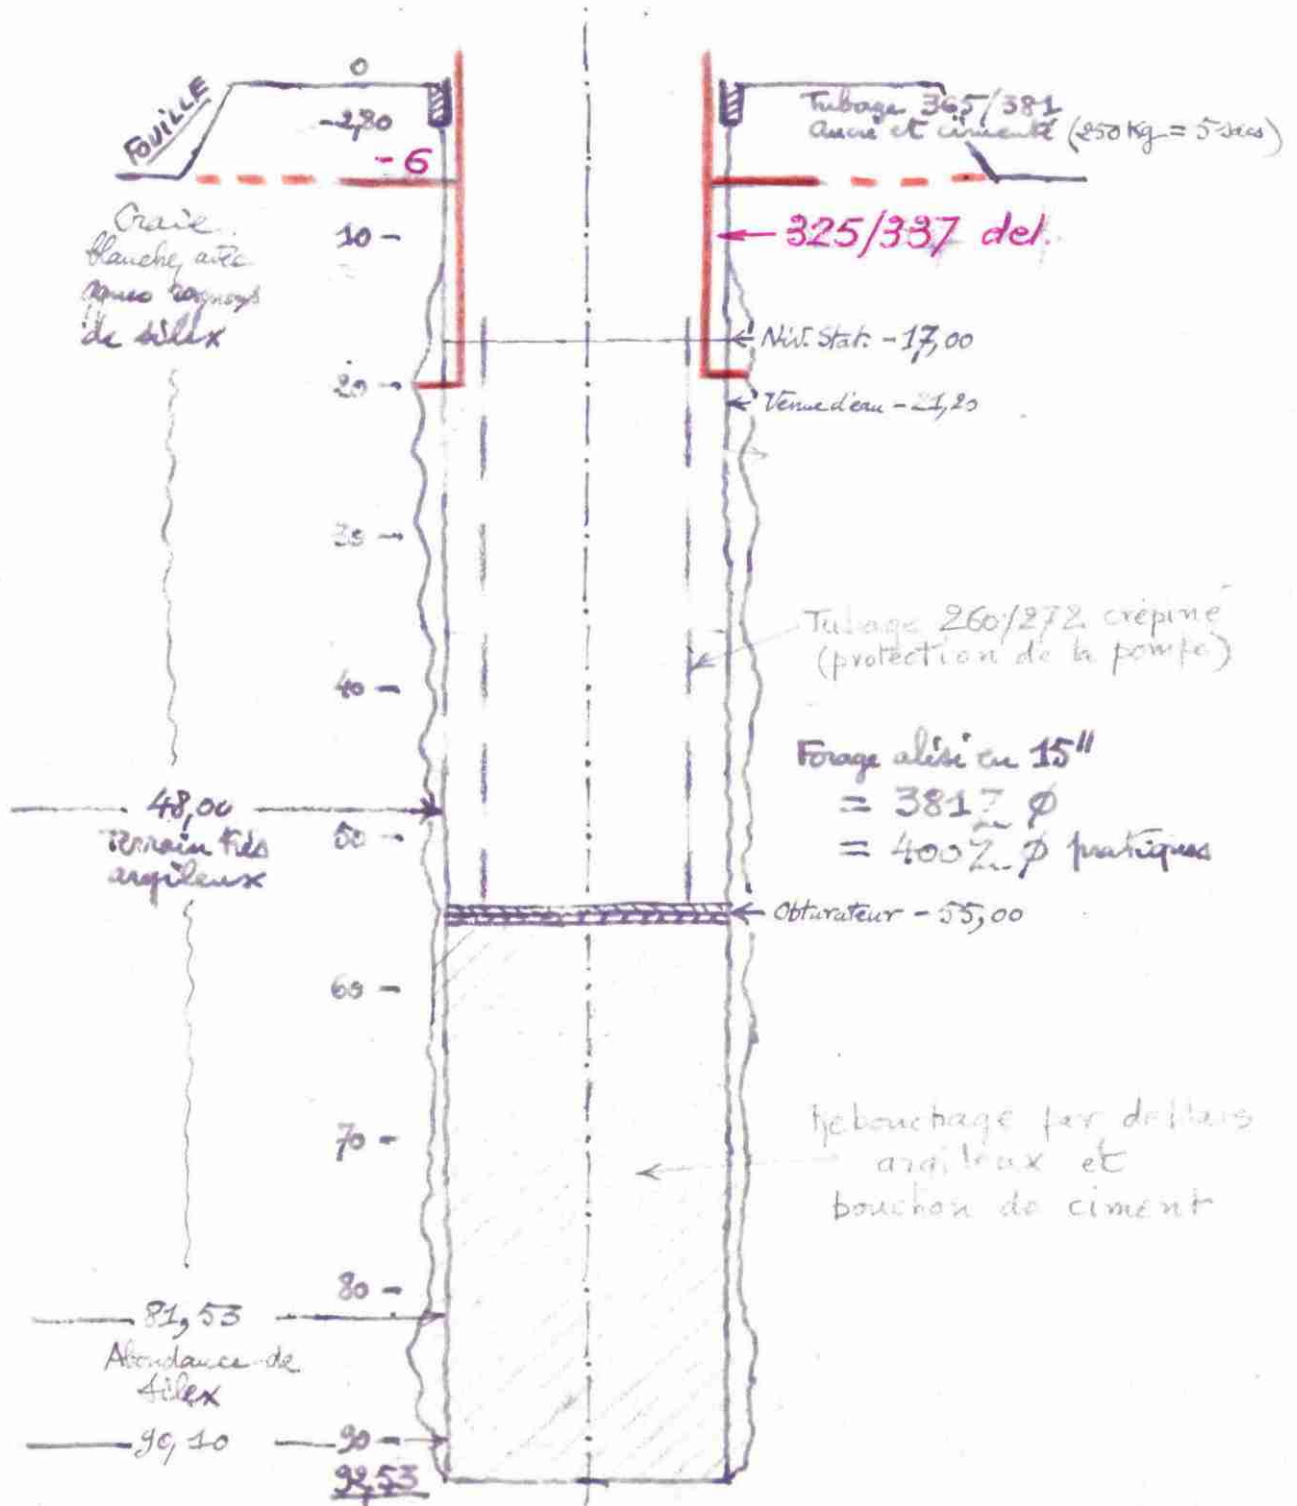 0
FOUILLE
-2,80
Tubage 365/381
ancré et cimenté (250 kg = 5 sacs)
-6
Craie
blanche avec
rognons
de silex
10 -
325/337 def.
Niv. Stat. - 17,00
20 -
Venue d'eau - 21,20
30 -
Tubage 260/272 crépiné
(protection de la pompe)
40 -
Forage alésé en 15"
= 381 ϕ
= 400 ϕ pratiques
48,00
Terrain très
argileux
50 -
Obturateur - 55,00
60 -
70 -
Rebouchage par déblais
argileux et
bouchon de ciment
80 -
81,53
Abondance de
silex
90,10
90 -
92,53